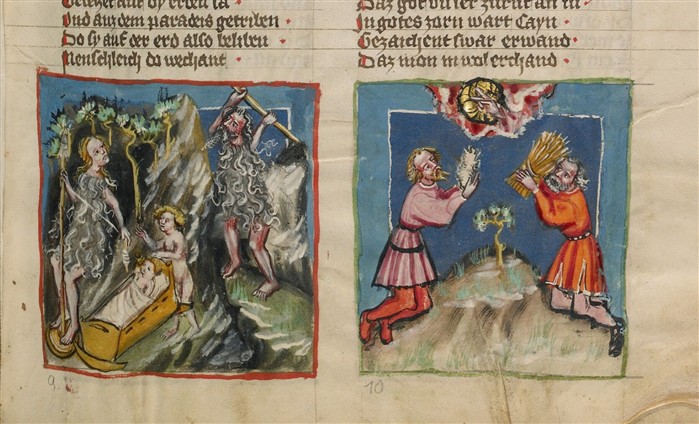 Und auz dem paradeis getriben
Do sy auf der erd also beliben
Menschleich do wechant
Daz got
In gotes zorn wart Cayn
Gezaichent swar er wand
Daz mon in wol erchand
9
10